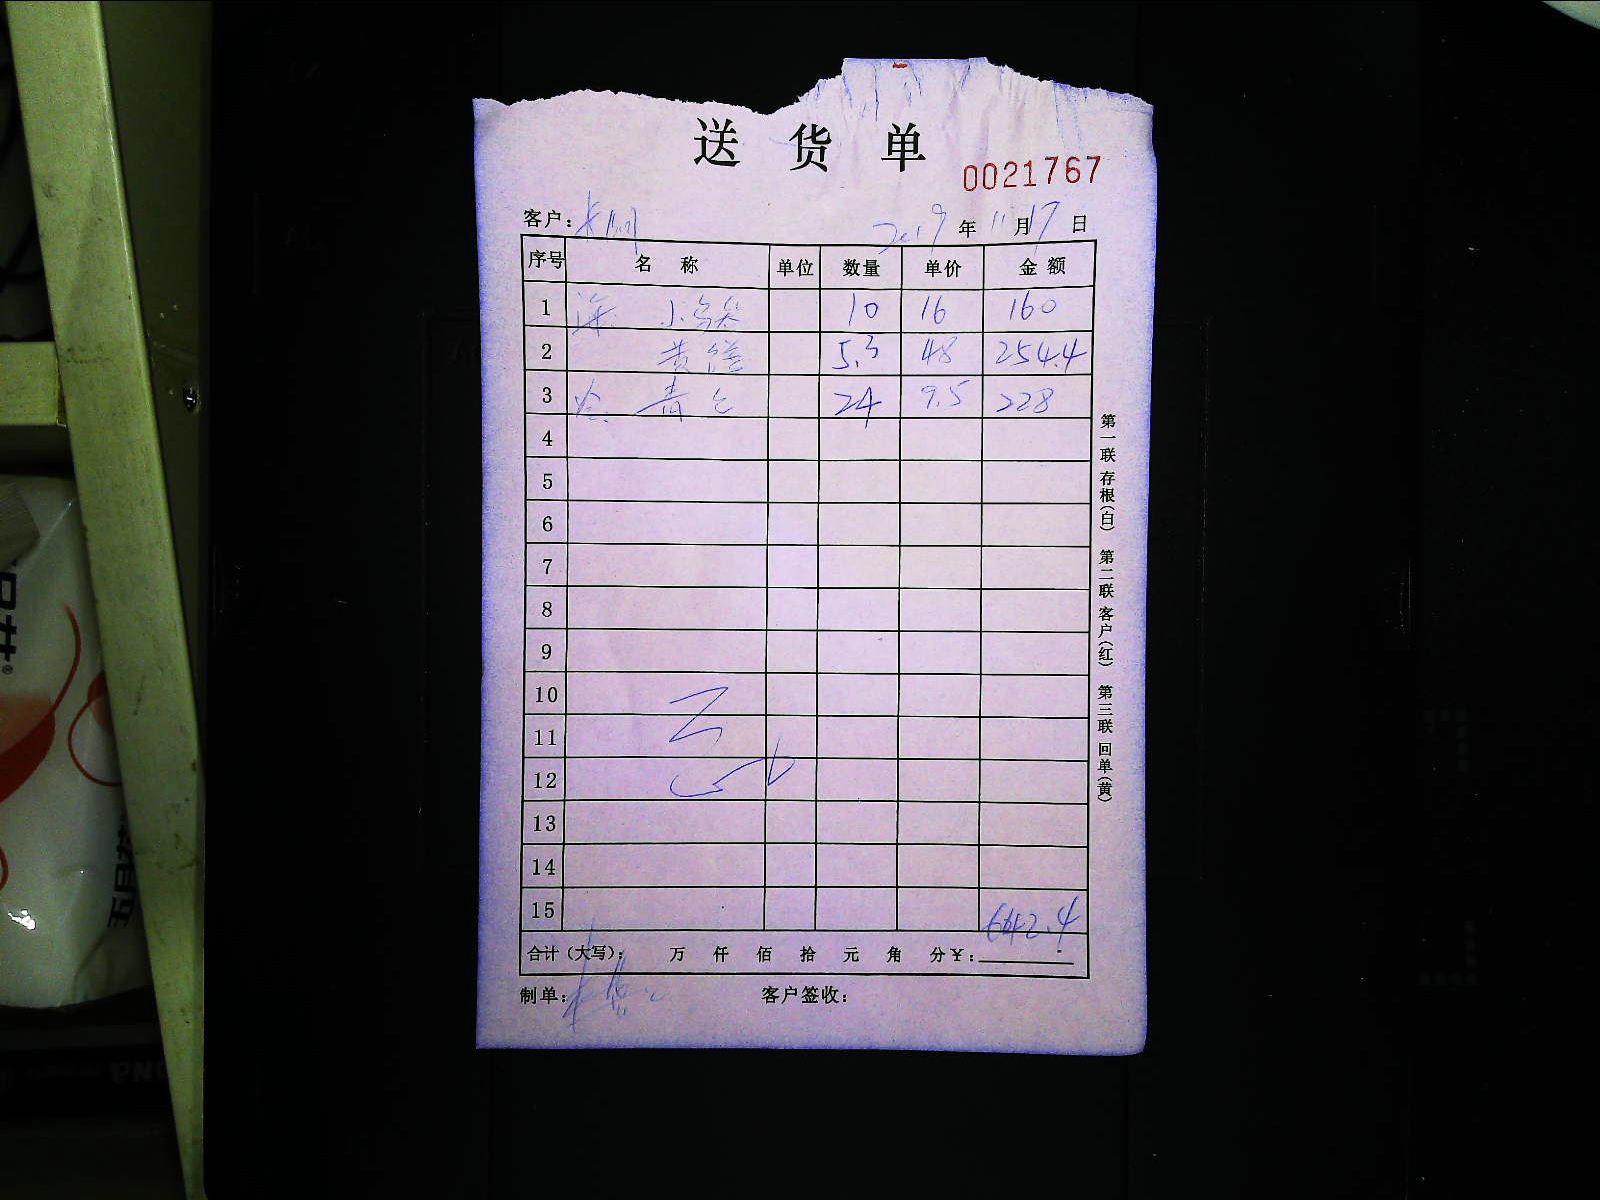 送 货 单
0021767
客户: 2019 年 11 月 17 日
序号 名 称 单位 数量 单价 金 额
1 海 小乌 10 16 160
2 黄 5.3 48 254.4
3 青 24 9.5 228
4
5
6
7
8
9
10
11
12
13
14
15 642.4
合计(大写): 万 仟 佰 拾 元 角 分¥:
制单: 客户签收:
第一联 存根(白) 第二联 客户(红) 第三联 回单(黄)